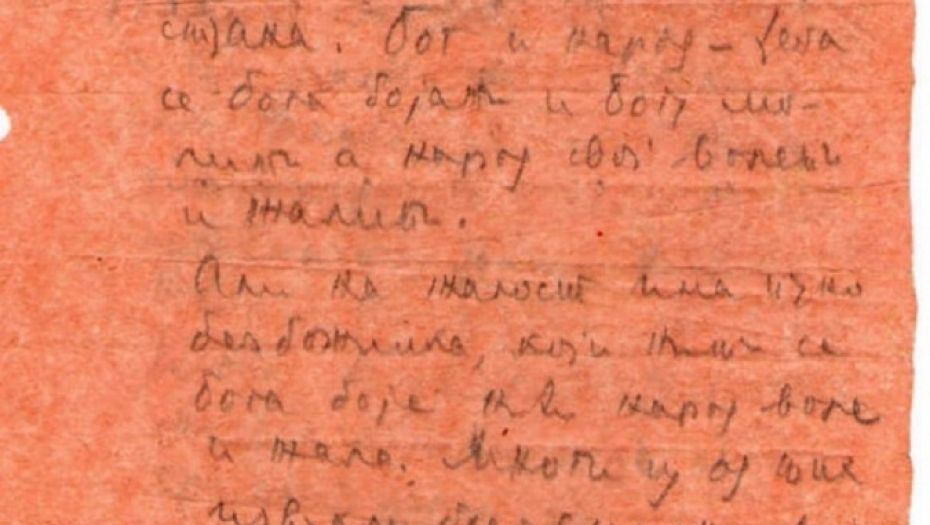 страна. Бог и народ – ваља
се бога бојати и богу мо-
лити а народ свој волети
и жалити.
Али на жалост има пуно
безбожника, који нити се
бога боје нити народ воле
и жале. Многи су од њих